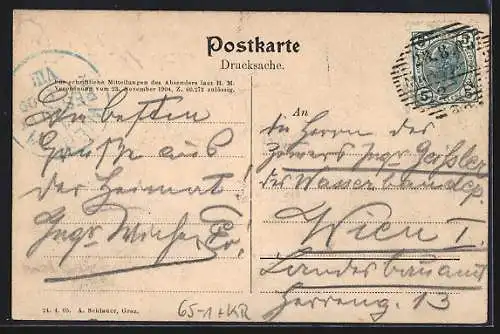 Postkarte
Drucksache.
Für schriftliche Mitteilungen des Absenders laut H. M.
Verordnung vom 23. November 1904, Z. 60.271 zulässig.
Die besten
Grüße aus
der Heimat!
Ingr
An
die Herren des
Ingr Geißler
des
Wien I.
Landesbauamt
Herreng. 13
5
5
24. 4. 05. A. Schlauer, Graz.
65-1+KR